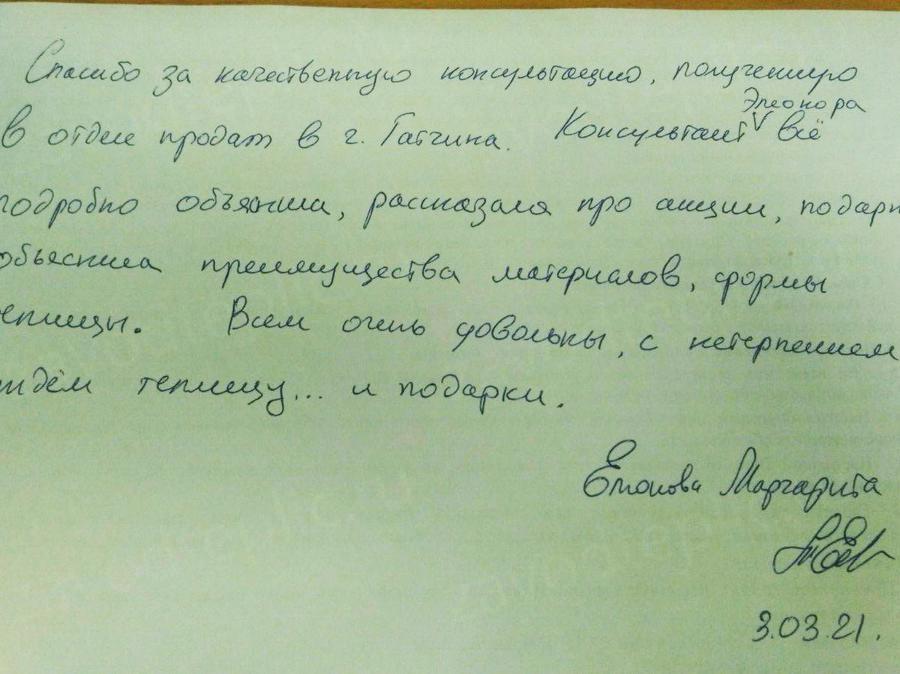 Спасибо за качественную консультацию, полученную
Элеонора
в отделе продаж в г. Гатчина. Консультант V всё
подробно объяснила, рассказала про акции, подарк
объяснила преимущества материалов, формы
еплицы. Всем очень довольны, с нетерпением
ждём теплицу... и подарки.
Маргарита
3.03.21.